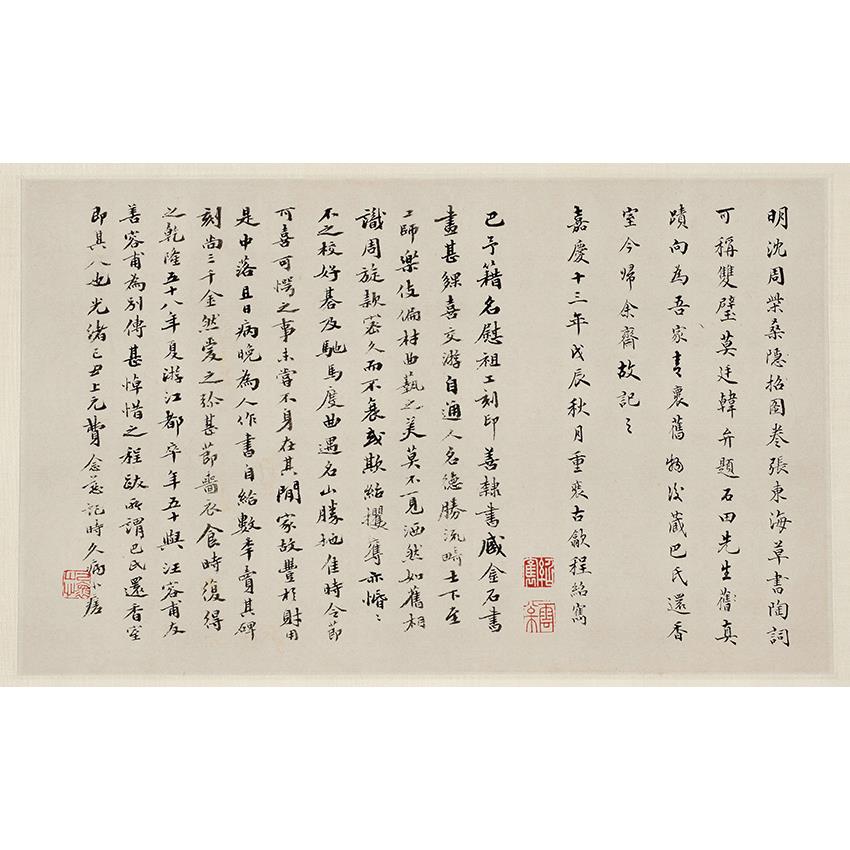 明沈周柴桑隐招圖卷張東海草書陶詞
可稱雙璧莫廷韓弁題石田先生舊真
蹟向為吾家青裏舊物後藏巴氏還香
室今歸余齋故記之
嘉慶十三年戊辰秋月重裝古歙程紹寯
巴予籍名慰祖工刻印善隸書藏金石書
畫甚絫喜交游自通人名德勝流畸士下至
工師樂伎偏材曲藝之美莫不一見洒然如舊相
識周旋款密久而不衰或欺紿攫奪亦惛〻
不之校好碁及馳馬度曲遇名山勝地佳時令節
可喜可愕之事未嘗不身在其間家故豐於財用
是中落且日病晚為人作書自給數年賣其碑
刻尚三千金然愛之弥甚節嗇衣食時復得
之乾隆五十八年夏游江都卒年五十與汪容甫友
善容甫為別傳甚悼惜之程跋所謂巴氏還香室
即其人也光緒己丑上元費念慈記時久病小差